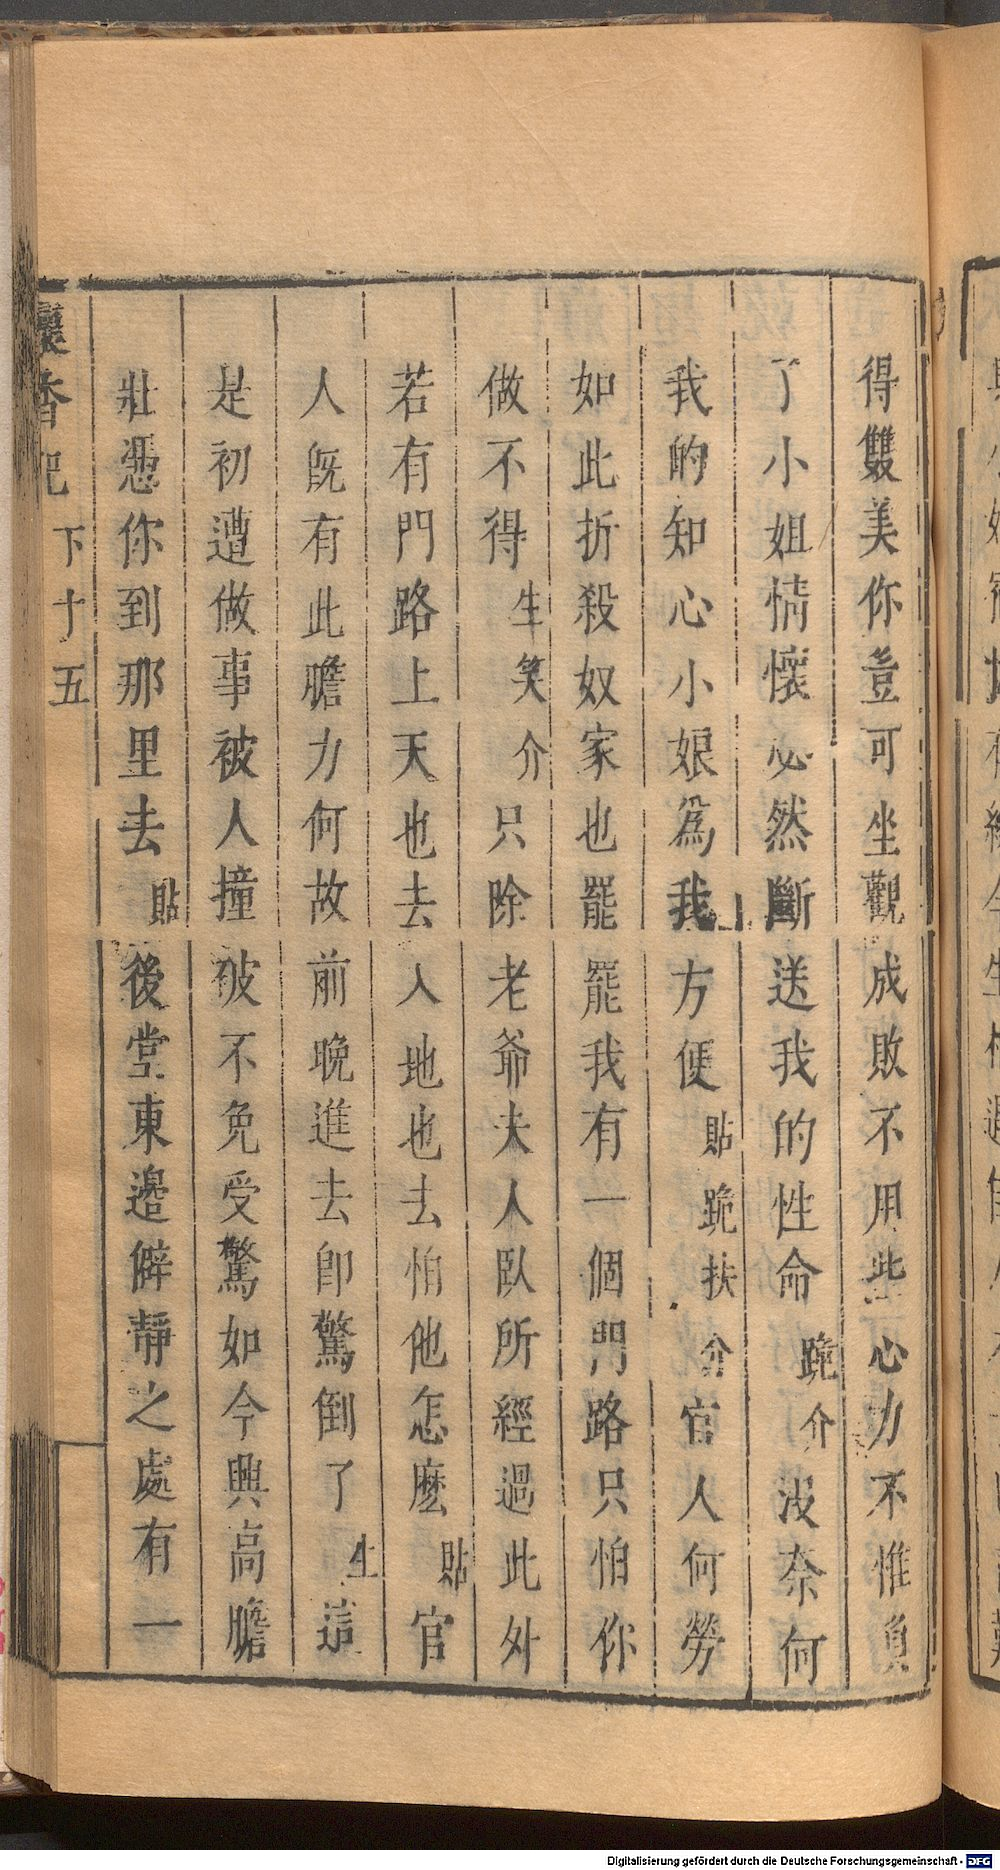 得雙美你豈可坐觀成敗不用些心力不惟負
了小姐情懷必然斷送我的性命跪介沒奈何
我的知心小娘爲我方便貼跪扶介官人何勞
如此折殺奴家也罷罷我有一個門路只怕你
做不得生笑介只除老爺夫人臥所經過此外
若有門路上天也去入地也去怕他怎麽貼官
人旣有此膽力何故前晚進去卽驚倒了生這
是初遭做事被人撞破不免受驚如今興高膽
壯憑你到那里去貼後堂東邉僻靜之處有一
懷香記 下 十五
Digitalisierung gefördert durch die Deutsche Forschungsgemeinschaft - DFG